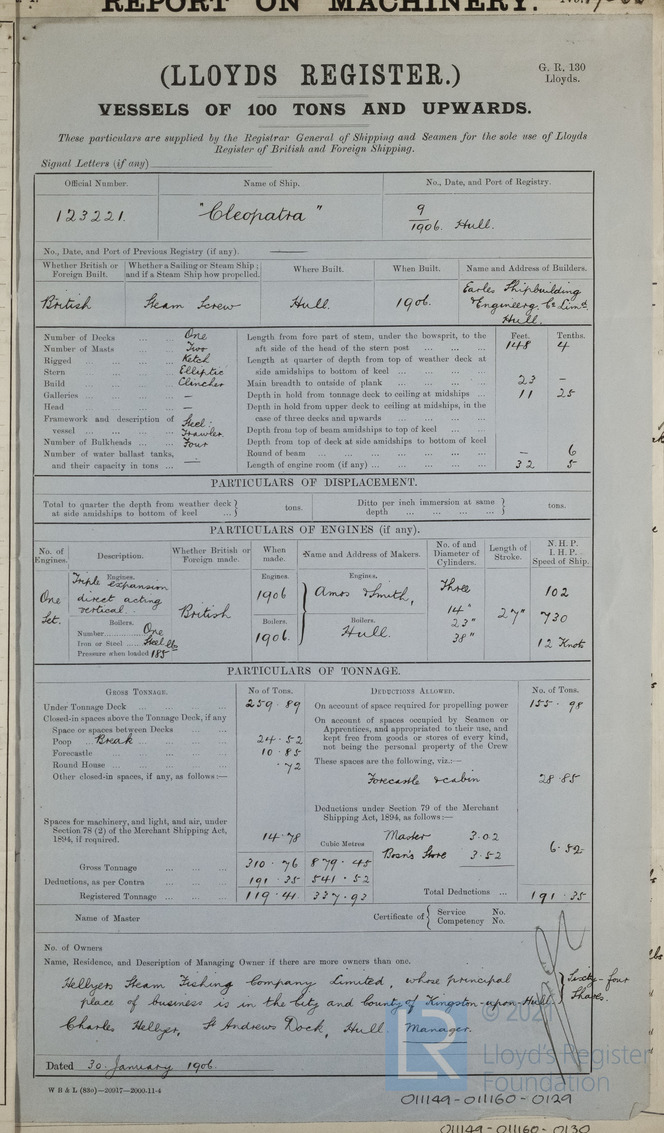 REPORT ON MACHINERY.
(LLOYDS REGISTER.)
G. R. 130
Lloyds.
VESSELS OF 100 TONS AND UPWARDS.
These particulars are supplied by the Registrar General of Shipping and Seamen for the sole use of Lloyds
Register of British and Foreign Shipping.
Signal Letters (if any)
Official Number. Name of Ship. No., Date, and Port of Registry.
123221. "Cleopatra" 9/1906. Hull.
No., Date, and Port of Previous Registry (if any).
Whether British or Foreign Built. Whether a Sailing or Steam Ship; and if a Steam Ship how propelled. Where Built. When Built. Name and Address of Builders.
British Steam Screw Hull. 1906. Earles Shipbuilding
& Engineerg. Co Limd.
Hull.
Feet. Tenths.
Number of Decks ... ... One
Number of Masts ... ... Two
Rigged ... ... Ketch
Stern ... ... Elliptic
Build ... ... Clincher
Galleries ... ... —
Head ... ... —
Framework and description of vessel ... ... Steel: Trawler.
Number of Bulkheads ... ... Four
Number of water ballast tanks, and their capacity in tons ... —
Length from fore part of stem, under the bowsprit, to the
aft side of the head of the stern post ... ... 148 4
Length at quarter of depth from top of weather deck at
side amidships to bottom of keel ... ...
Main breadth to outside of plank ... ... 23 —
Depth in hold from tonnage deck to ceiling at midships ... 11 25
Depth in hold from upper deck to ceiling at midships, in the
case of three decks and upwards ... ...
Depth from top of beam amidships to top of keel ...
Depth from top of deck at side amidships to bottom of keel
Round of beam ... ... — 6
Length of engine room (if any) ... ... 32 5
PARTICULARS OF DISPLACEMENT.
Total to quarter the depth from weather deck
at side amidships to bottom of keel ... } tons.
Ditto per inch immersion at same
depth ... ... } tons.
PARTICULARS OF ENGINES (if any).
No. of Engines. Description. Whether British or Foreign made. When made. Name and Address of Makers. No. of and Diameter of Cylinders. Length of Stroke. N. H. P. I. H. P. Speed of Ship.
Engines. Engines. Engines.
One Set. Triple expansion direct acting vertical. British 1906 Amos & Smith, Three 102
14" 23" 38" 27" 730
Boilers. Boilers. Boilers.
Number One 1906. Hull. 12 Knots
Iron or Steel Steel lb
Pressure when loaded 185
PARTICULARS OF TONNAGE.
GROSS TONNAGE. No of Tons. DEDUCTIONS ALLOWED. No. of Tons.
Under Tonnage Deck ... ... 259.89
Closed-in spaces above the Tonnage Deck, if any
Space or spaces between Decks ...
Poop Break ... 24.52
Forecastle ... ... 10.85
Round House ... ... .72
Other closed-in spaces, if any, as follows:—
Spaces for machinery, and light, and air, under
Section 78 (2) of the Merchant Shipping Act,
1894, if required. 14.78
Cubic Metres
Gross Tonnage ... ... 310.76 879.45
Deductions, as per Contra ... ... 191.35 541.52
Registered Tonnage ... ... 119.41 337.93
On account of space required for propelling power 155.98
On account of spaces occupied by Seamen or
Apprentices, and appropriated to their use, and
kept free from goods or stores of every kind,
not being the personal property of the Crew
These spaces are the following, viz.:—
Forecastle & cabin 28.85
Deductions under Section 79 of the Merchant
Shipping Act, 1894, as follows:—
Master 3.02
Bosn's Store 3.52 6.52
Total Deductions ... 191.35
Name of Master
Certificate of { Service No.
Competency No.
No. of Owners
Name, Residence, and Description of Managing Owner if there are more owners than one.
Hellyers Steam Fishing Company Limited, whose principal
place of business is in the City and County of Kingston-upon-Hull } Sixty-four Shares.
Charles Hellyer, St Andrews Dock, Hull. Manager.
Dated 30 January 1906.
W B & L (83o)—20917—2000-11-4
LR
© 2021
Lloyd's Register
Foundation
011149-011160-0129
011149-011160-0130